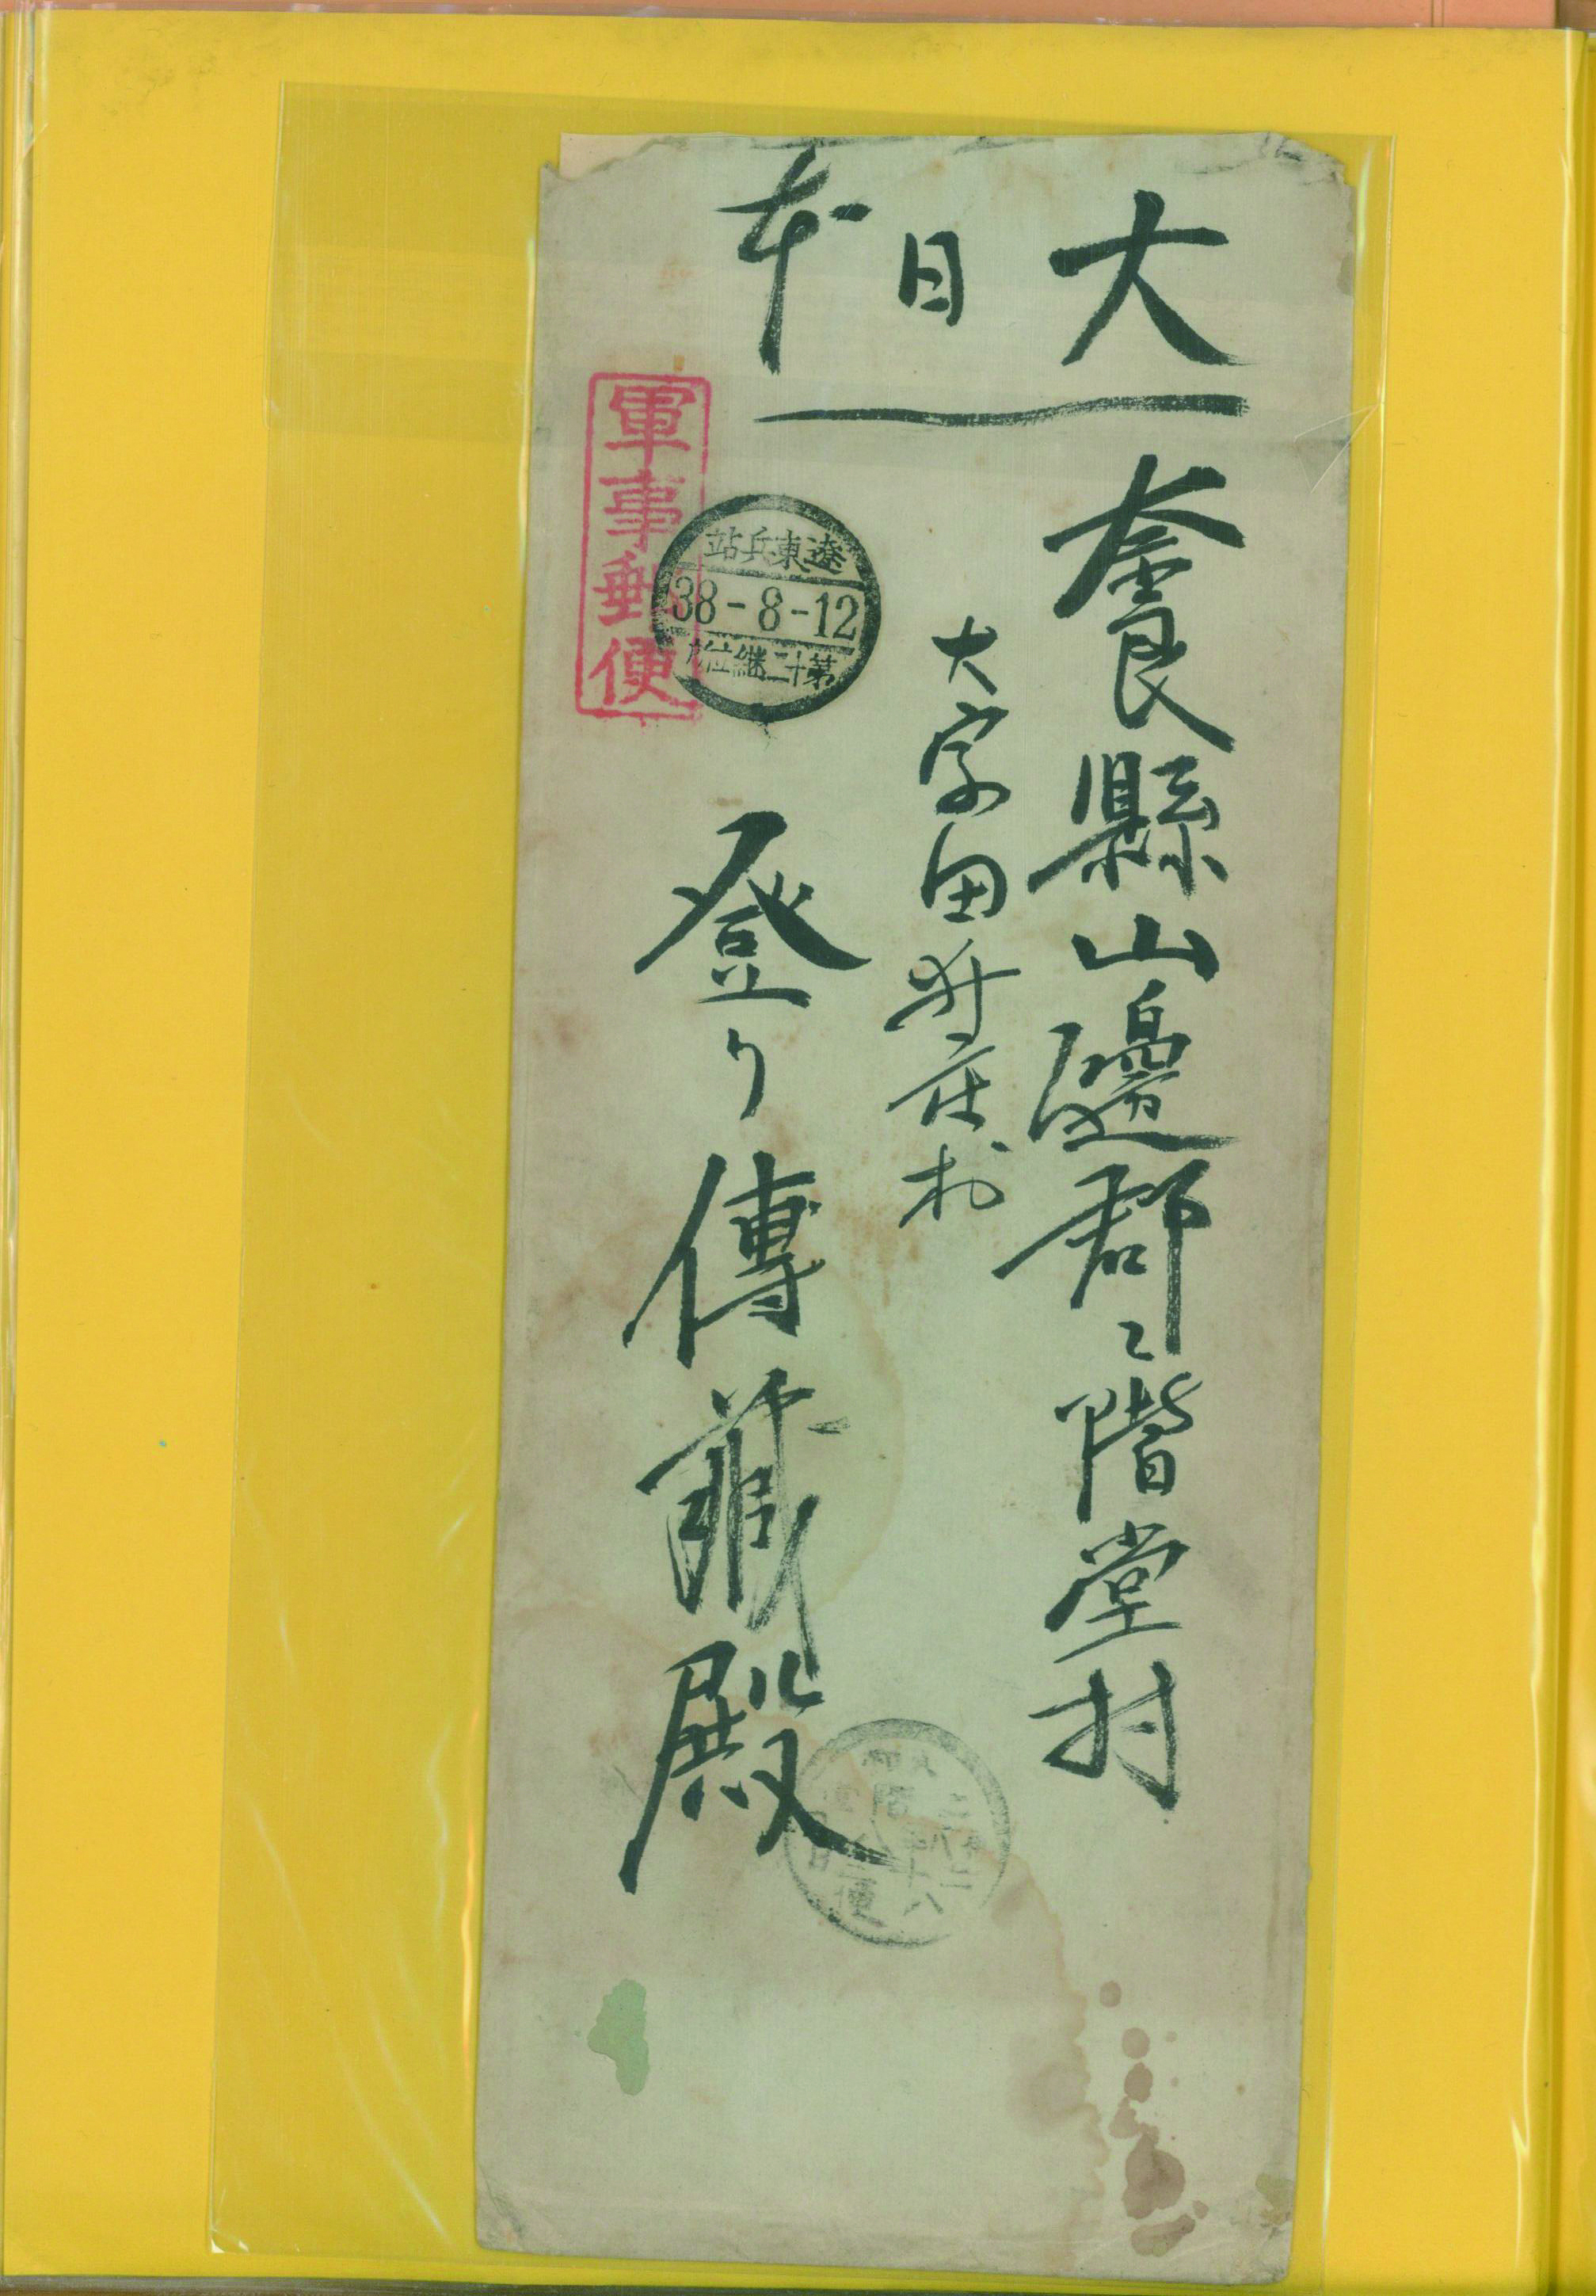 大日本
奈良縣山邊郡二階堂村
大字田井庄村
登り傳藏殿
軍事郵便
遼東兵站
38-8-12
第十二継立所